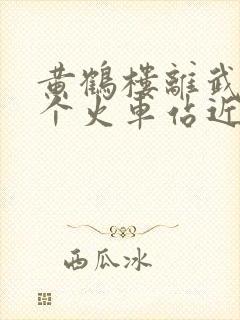 黄鹤楼离武
个火车站近
西瓜冰